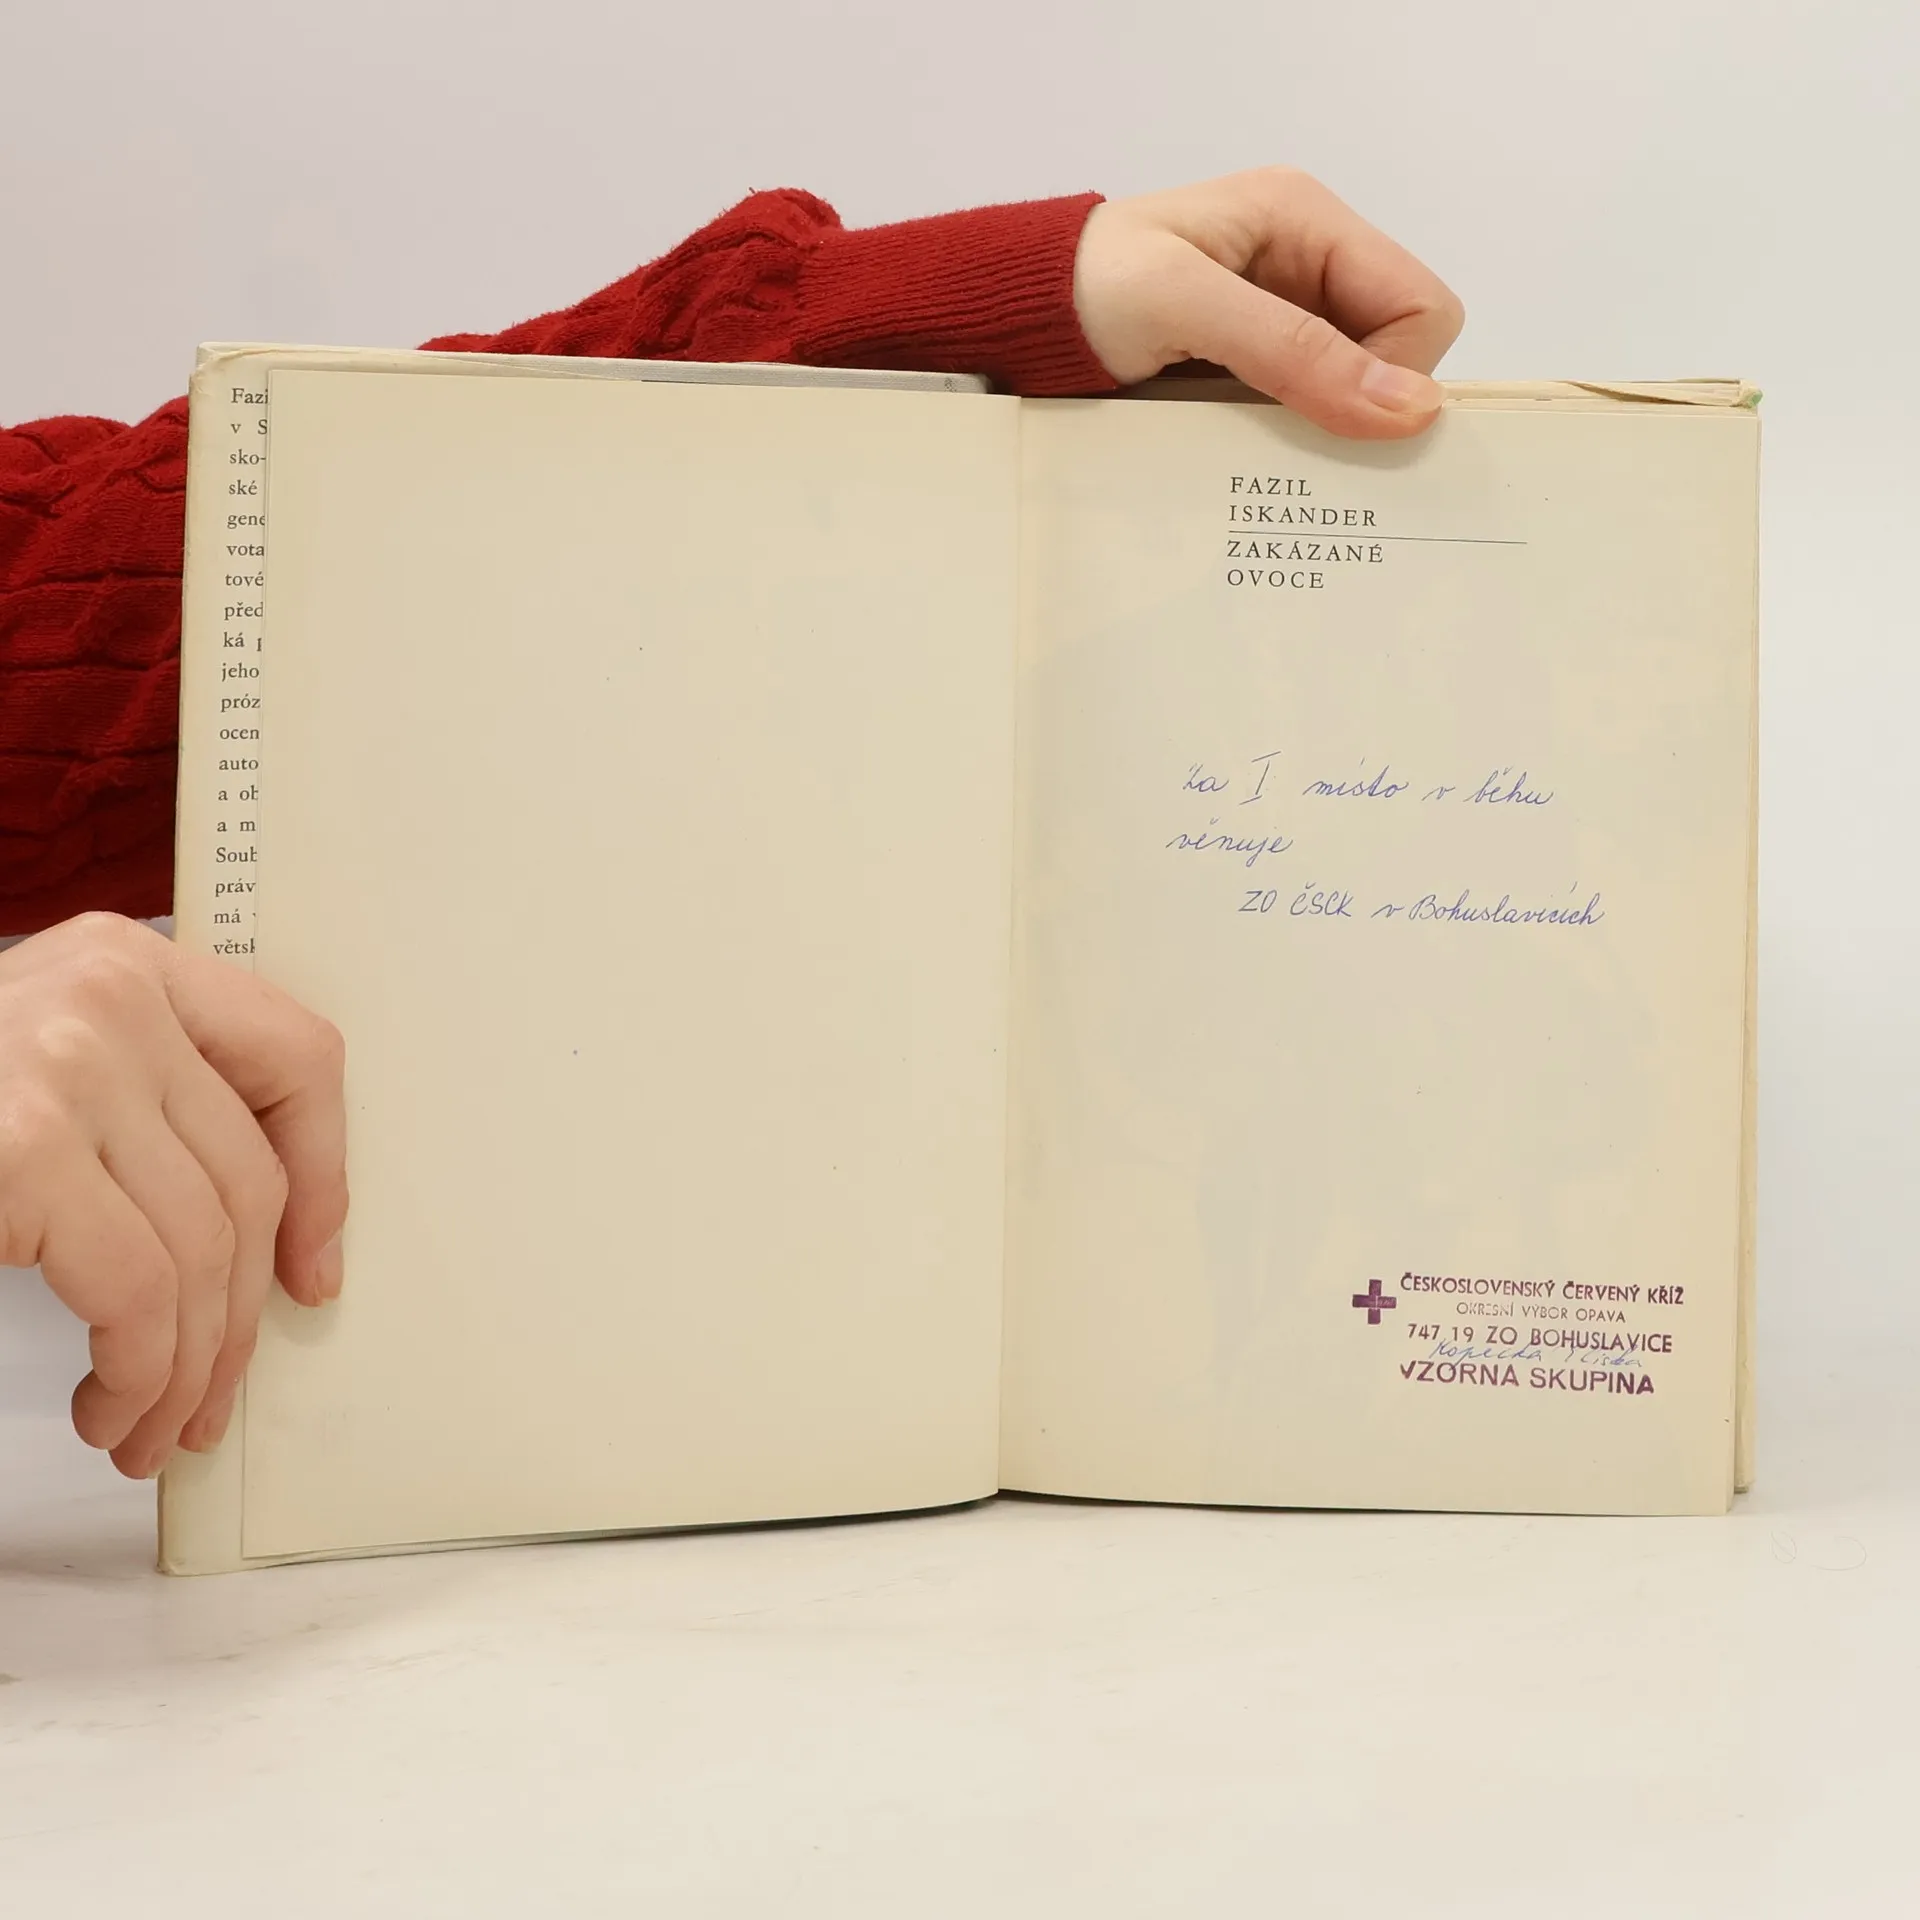 Fazi
v S
sko-
ské
gene
vota
tové
před
ká p
jeho
próz
ocen
auto
a ob
a m
Soub
práv
má v
větsk
FAZIL
ISKANDER
ZAKÁZANÉ
OVOCE
Za I. místo v běhu
věnuje
ZO ČSČK v Bohuslavicích
ČESKOSLOVENSKÝ ČERVENÝ KŘÍŽ
OKRESNÍ VÝBOR OPAVA
747 19 ZO BOHUSLAVICE
VZORNA SKUPINA